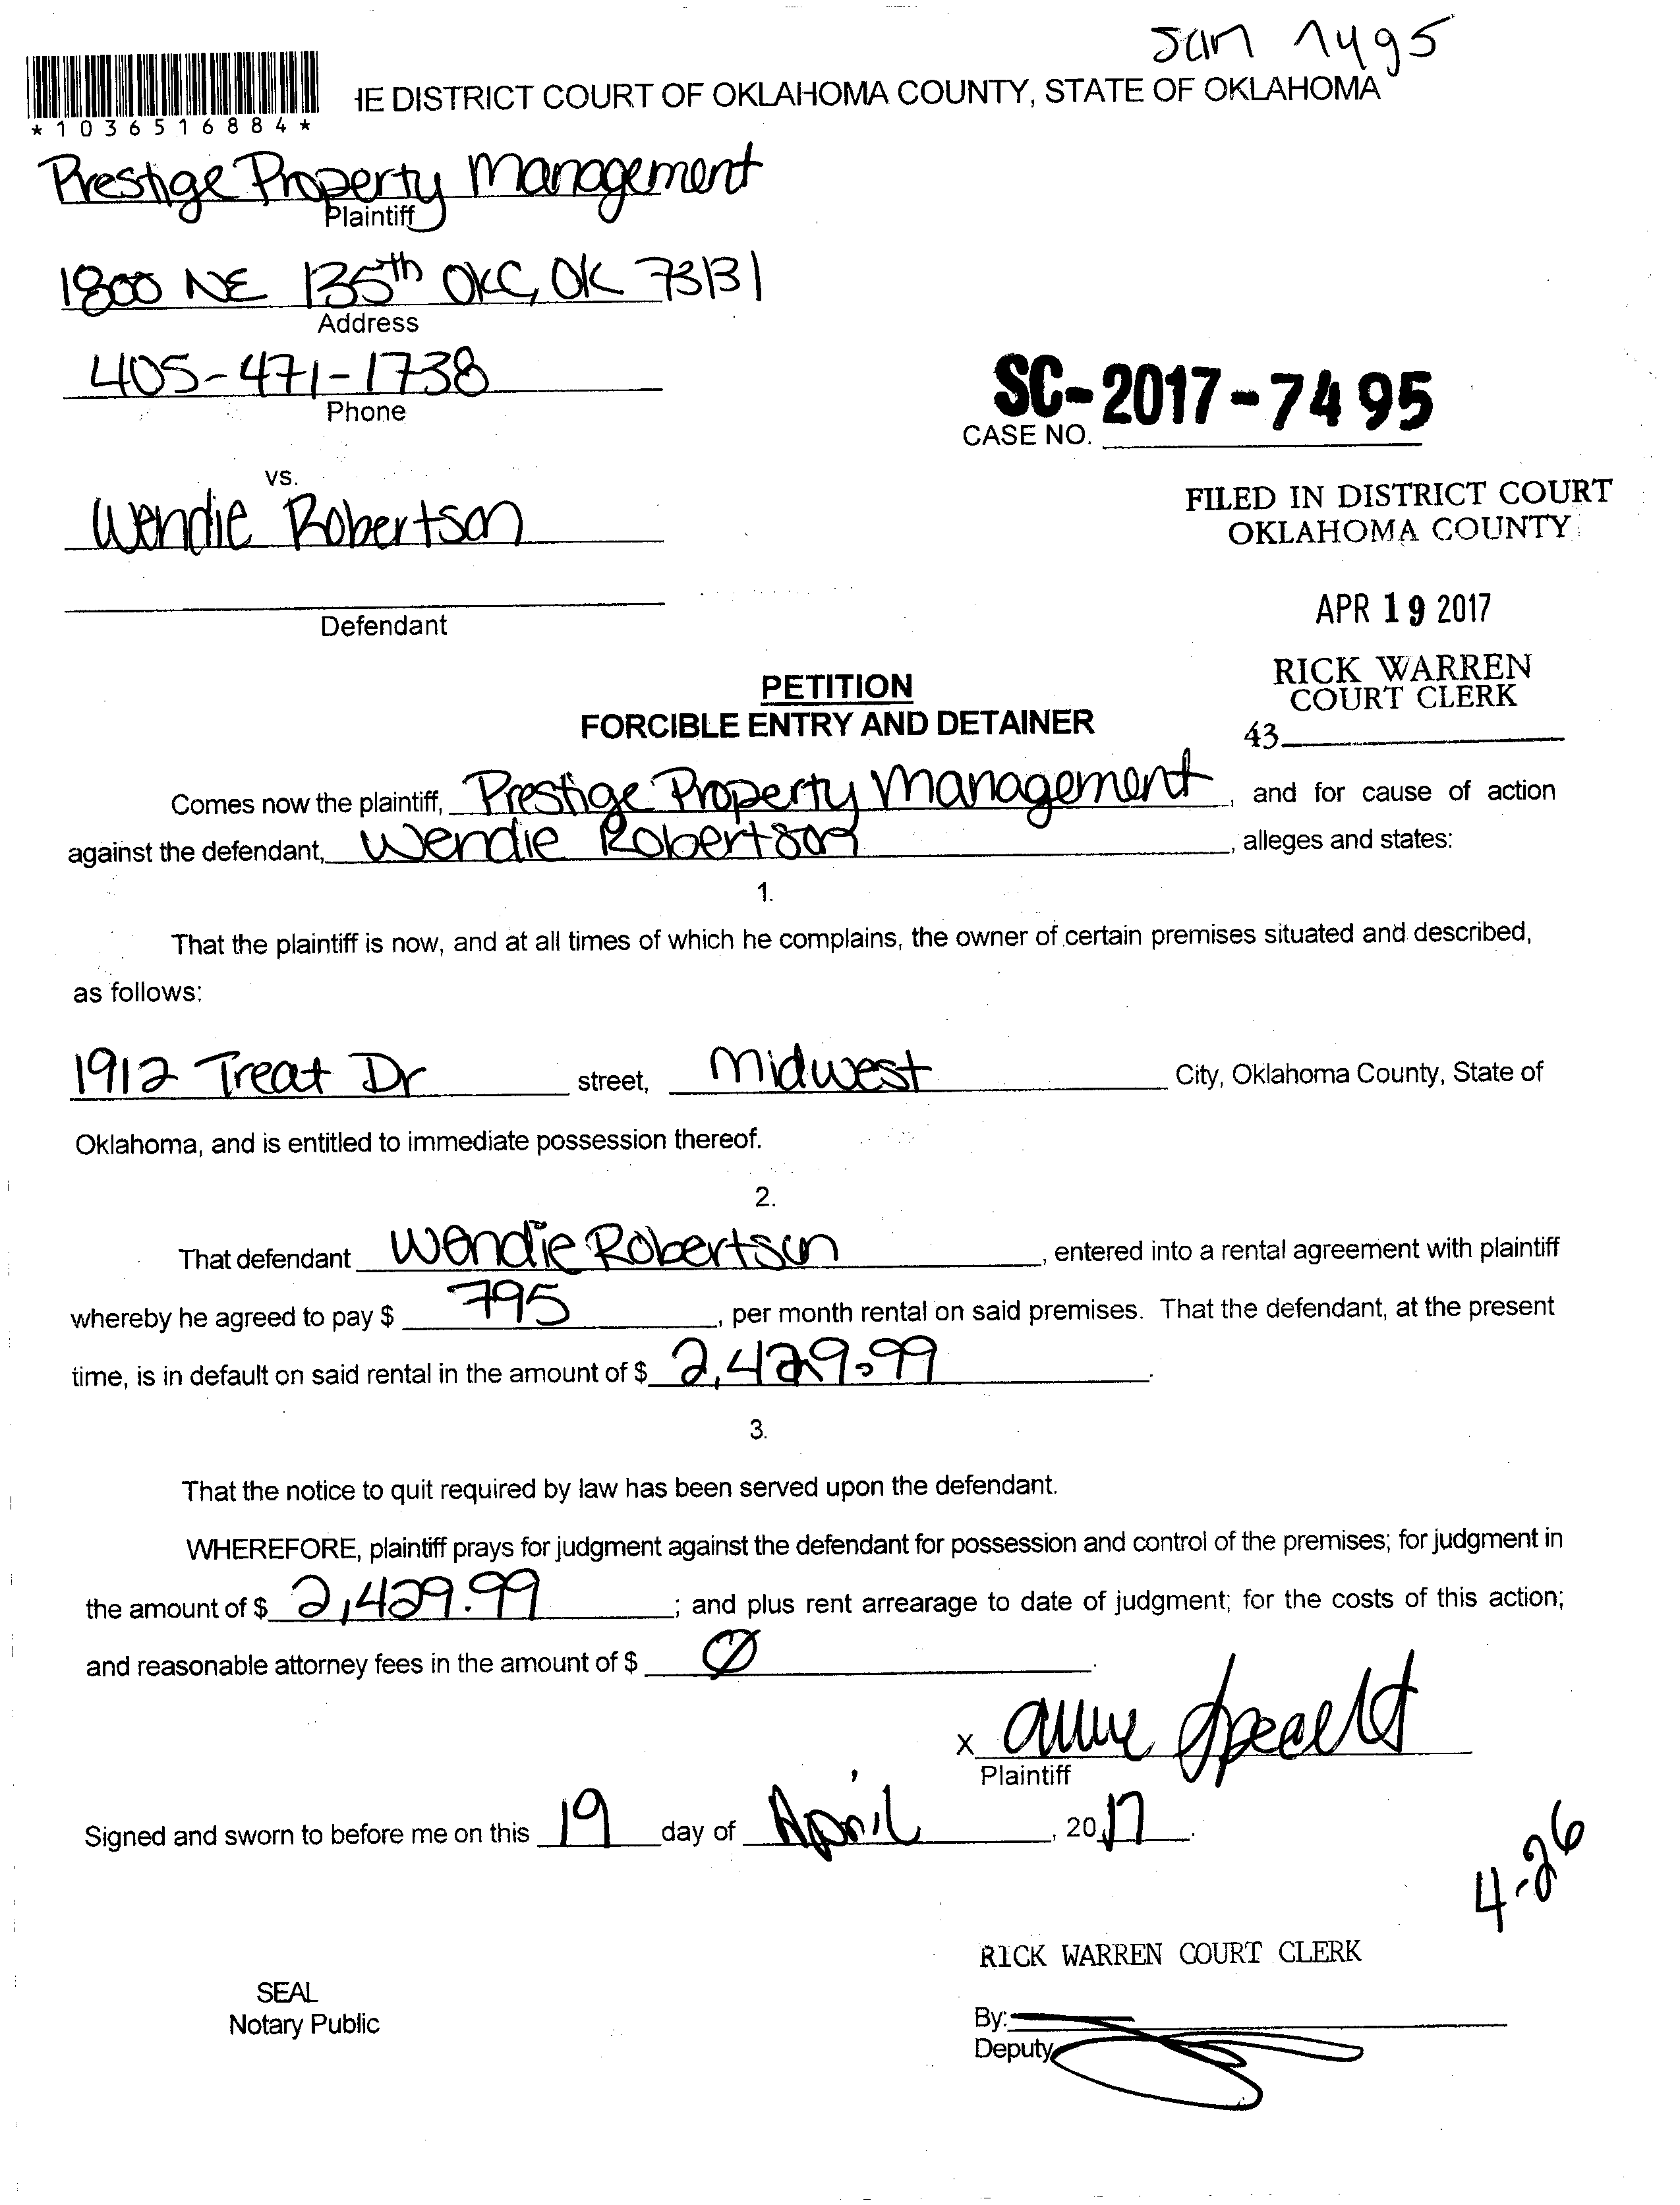 San 7495
*1036516884*
HE DISTRICT COURT OF OKLAHOMA COUNTY, STATE OF OKLAHOMA
Prestige Property Management
Plaintiff
1800 NE 135th OKC, OK 73131
Address
405-471-1738
Phone
SC-2017-7495
CASE NO.
vs.
Wendie Robertson
FILED IN DISTRICT COURT
OKLAHOMA COUNTY
Defendant
APR 19 2017
RICK WARREN
COURT CLERK
43
PETITION
FORCIBLE ENTRY AND DETAINER
Comes now the plaintiff, Prestige Property Management, and for cause of action
against the defendant, Wendie Robertson, alleges and states:
1.
That the plaintiff is now, and at all times of which he complains, the owner of certain premises situated and described,
as follows:
1912 Treat Dr street, Midwest City, Oklahoma County, State of
Oklahoma, and is entitled to immediate possession thereof.
2.
That defendant Wendie Robertson, entered into a rental agreement with plaintiff
whereby he agreed to pay $ 795, per month rental on said premises. That the defendant, at the present
time, is in default on said rental in the amount of $ 2,429.99.
3.
That the notice to quit required by law has been served upon the defendant.
WHEREFORE, plaintiff prays for judgment against the defendant for possession and control of the premises; for judgment in
the amount of $ 2,429.99; and plus rent arrearage to date of judgment; for the costs of this action;
and reasonable attorney fees in the amount of $ Ø.
x
Plaintiff
Signed and sworn to before me on this 19 day of April, 2017.
4-26
RICK WARREN COURT CLERK
SEAL
Notary Public
By:
Deputy